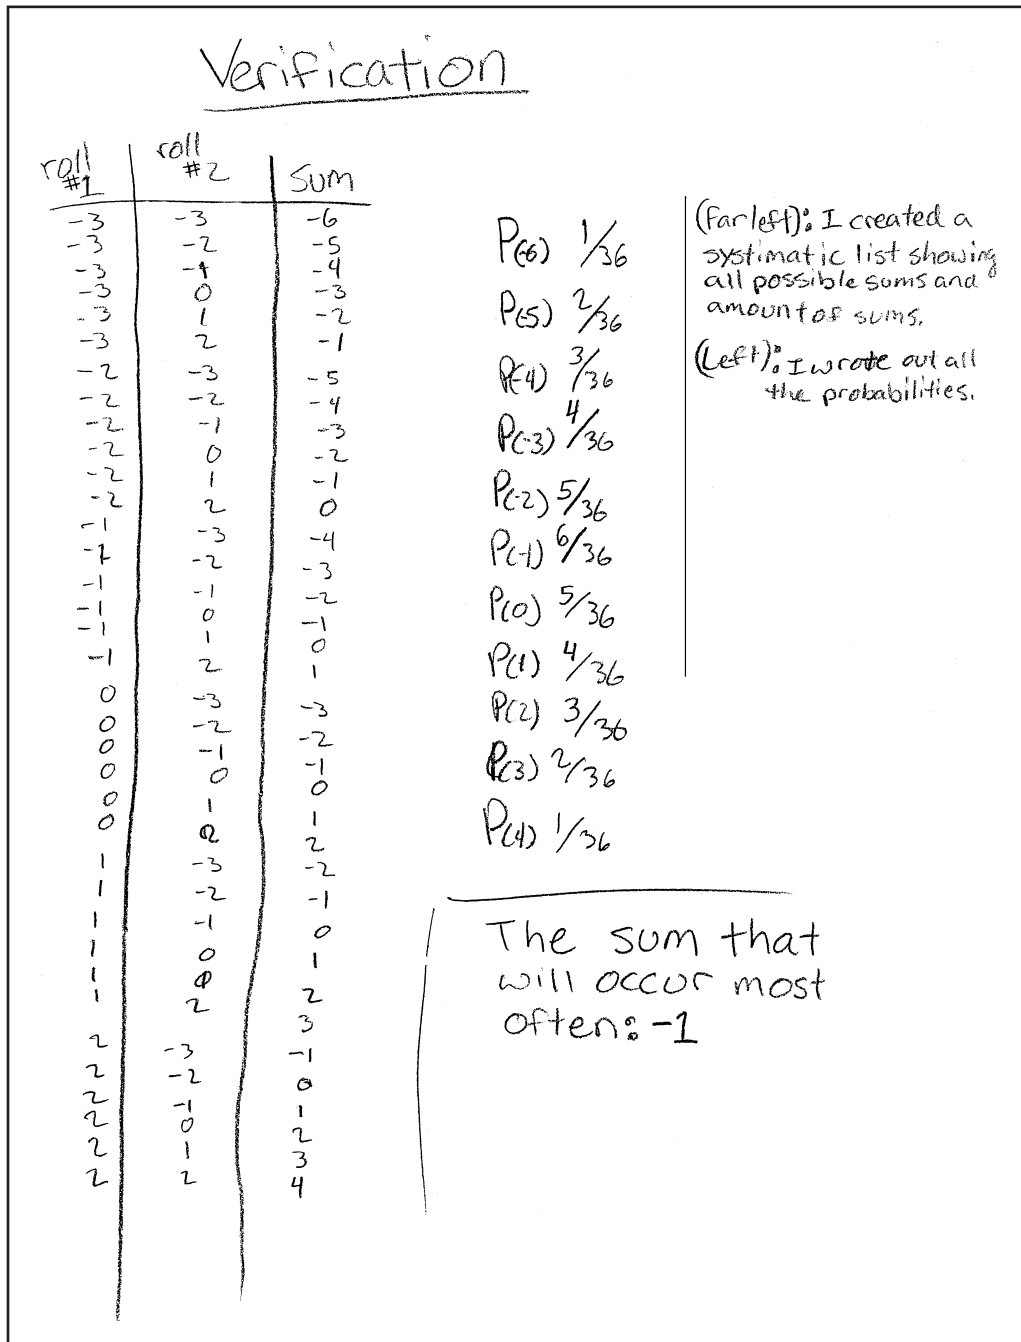 Verification
roll #1 roll #2 sum
-3 -3 -6
-3 -2 -5
-3 -1 -4
-3 0 -3
-3 1 -2
-3 2 -1
-2 -3 -5
-2 -2 -4
-2 -1 -3
-2 0 -2
-2 1 -1
-2 2 0
-1 -3 -4
-1 -2 -3
-1 -1 -2
-1 0 -1
-1 1 0
-1 2 1
0 -3 -3
0 -2 -2
0 -1 -1
0 0 0
0 1 1
0 2 2
1 -3 -2
1 -2 -1
1 -1 0
1 0 1
1 2
1 2 3
2 -3 -1
2 -2 0
2 -1 1
2 0 2
2 1 3
2 2 4
P(-6) 1/36
P(-5) 2/36
P(-4) 3/36
P(-3) 4/36
P(-2) 5/36
P(-1) 6/36
P(0) 5/36
P(1) 4/36
P(2) 3/36
P(3) 2/36
P(4) 1/36
(Far left): I created a
systimatic list showing
all possible sums and
amount of sums.
(Left): I wrote out all
the probabilities.
The sum that
will occur most
often: -1